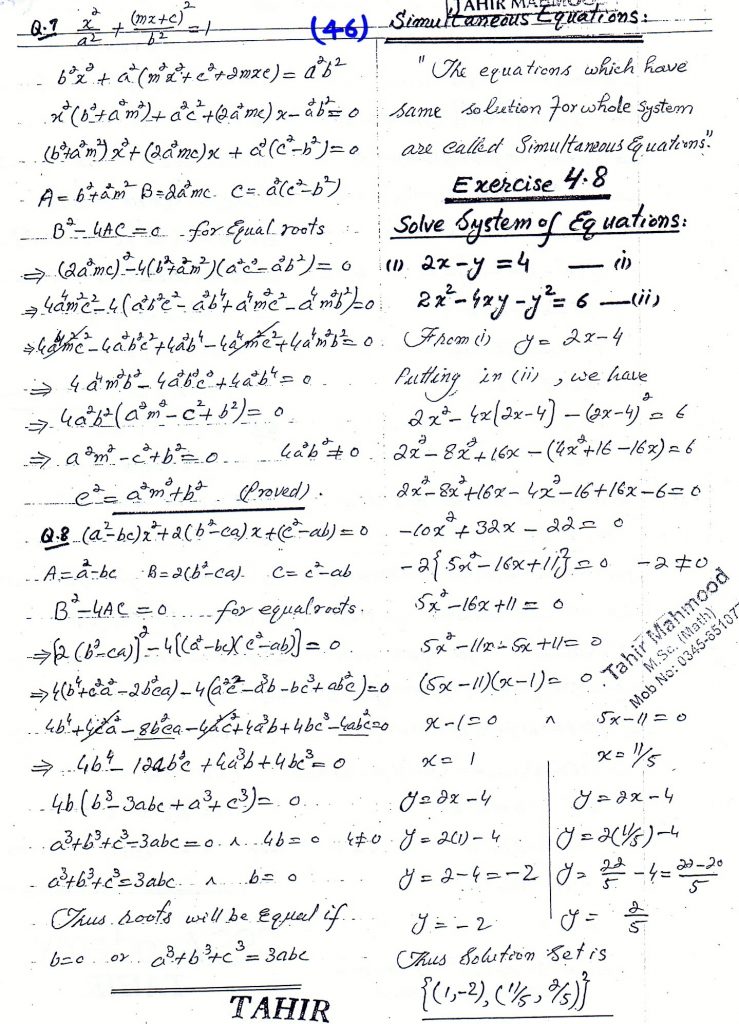 Q.7 x²/a² + (mx+c)²/b² = 1
b²x² + a²(m²x²+c²+2mxc) = a²b²
x²(b²+a²m²) + a²c² + (2a²mc)x - a²b² = 0
(b²+a²m²)x² + (2a²mc)x + a²(c²-b²) = 0
A = b²+a²m² B = 2a²mc. C = a²(c²-b²)
B²-4AC = 0 for Equal roots
⇒ (2a²mc)²-4(b²+a²m²)(a²c²-a²b²) = 0
⇒ 4a⁴m²c²-4(a²b²c²-a²b⁴+a⁴m²c²-a⁴m²b²) = 0
⇒ 4a⁴m²c²-4a²b²c²+4a²b⁴-4a⁴m²c²+4a⁴m²b² = 0.
⇒ 4a⁴m²b²-4a²b²c²+4a²b⁴ = 0.
⇒ 4a²b²(a²m²-c²+b²) = 0.
⇒ a²m²-c²+b² = 0. 4a²b² ≠ 0.
c² = a²m²+b² (Proved).
Q.8 (a²-bc)x²+2(b²-ca)x+(c²-ab) = 0
A = a²-bc B = 2(b²-ca). C = c²-ab
B²-4AC = 0 for equal roots.
⇒ [2(b²-ca)]²-4[(a²-bc)(c²-ab)] = 0.
⇒ 4(b⁴+c²a²-2b²ca)-4(a²c²-a³b-bc³+ab²c) = 0
4b⁴+4c²a²-8b²ca-4a²c²+4a³b+4bc³-4ab²c = 0
⇒ 4b⁴-12ab²c+4a³b+4bc³ = 0
4b(b³-3abc+a³+c³) = 0.
a³+b³+c³-3abc = 0. ∧ 4b = 0 4≠0
a³+b³+c³ = 3abc ∧ b = 0
Thus roots will be Equal if
b=0 or a³+b³+c³ = 3abc
TAHIR
(46)
TAHIR
Simultaneous Equations:
"The equations which have
same solution for whole system
are called Simultaneous Equations".
Exercise 4.8
Solve System of Equations:
(1) 2x-y = 4 — (i)
2x²-4xy-y² = 6 — (ii)
From (i) y = 2x-4
Putting in (ii), we have
2x²-4x(2x-4)-(2x-4)² = 6
2x²-8x²+16x-(4x²+16-16x) = 6
2x²-8x²+16x-4x²-16+16x-6 = 0
-10x²+32x-22 = 0
-2{5x²-16x+11} = 0 -2≠0
5x²-16x+11 = 0
5x²-11x-5x+11 = 0
(5x-11)(x-1) = 0
x-1 = 0 ∧ 5x-11 = 0
x = 1 x = 11/5
y = 2x-4 y = 2x-4
y = 2(1)-4 y = 2(11/5)-4
y = 2-4 = -2 y = 22/5 -4 = 22-20/5
y = -2 y = 2/5
Thus Solution Set is
{(1,-2), (11/5, 2/5)}
Tahir Mahmood
M.Sc. (Math)
Mob No: 0345-65107